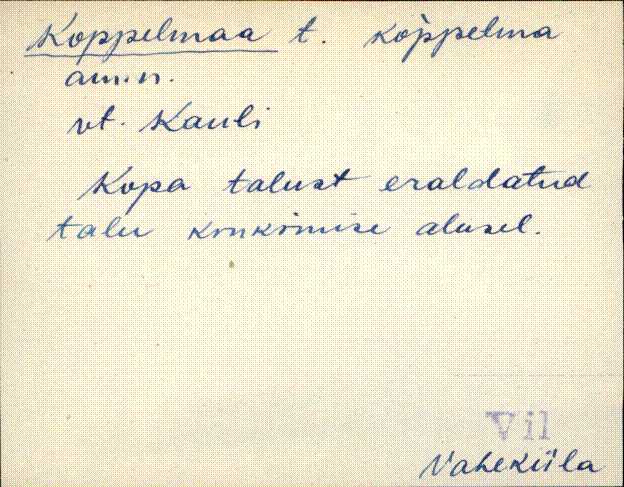 Koppelmaa t. kòppelma
am.n.
vt. Kauli
Kopa talust eraldatud
talu krunkimise alusel.
Vil
Vaheküla